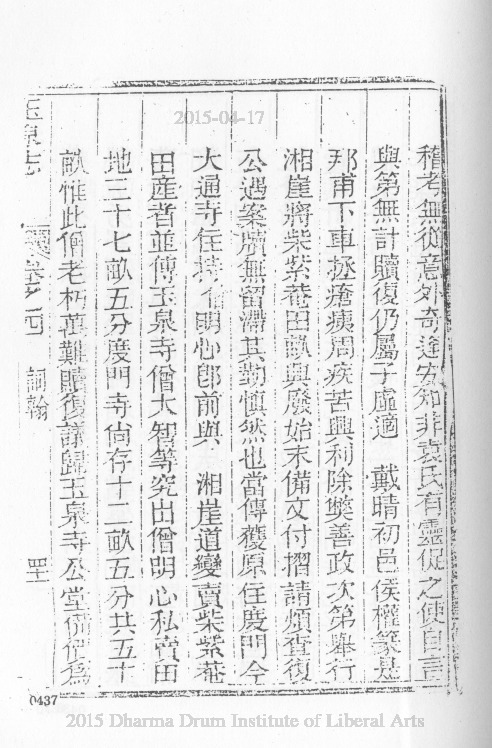 稽考無從意外奇逢安知非袁氏有靈促之使自言
與第無計贖復仍屬子虛適　戴晴初邑侯權篆是
邦甫下車拯瘡痍周疾苦興利除獘善政次第舉行
湘崖將柴紫菴田畝興廢始末備文付摺請煩查復
公過案牘無留滯其勤慎然也當傳夔原住度門今
大通寺住持僧明心卽前與　湘崖道變賣柴紫菴
田產者並傳玉泉寺僧大智等究出僧明心私賣田
地三十七畝五分度門寺尙存十二畝五分共五十
畝惟此僧老朽萬難贖復議歸玉泉寺公堂併伊爲
玉泉志
卷之四
詞翰
0437
2015-04-17
2015 Dharma Drum Institute of Liberal Arts